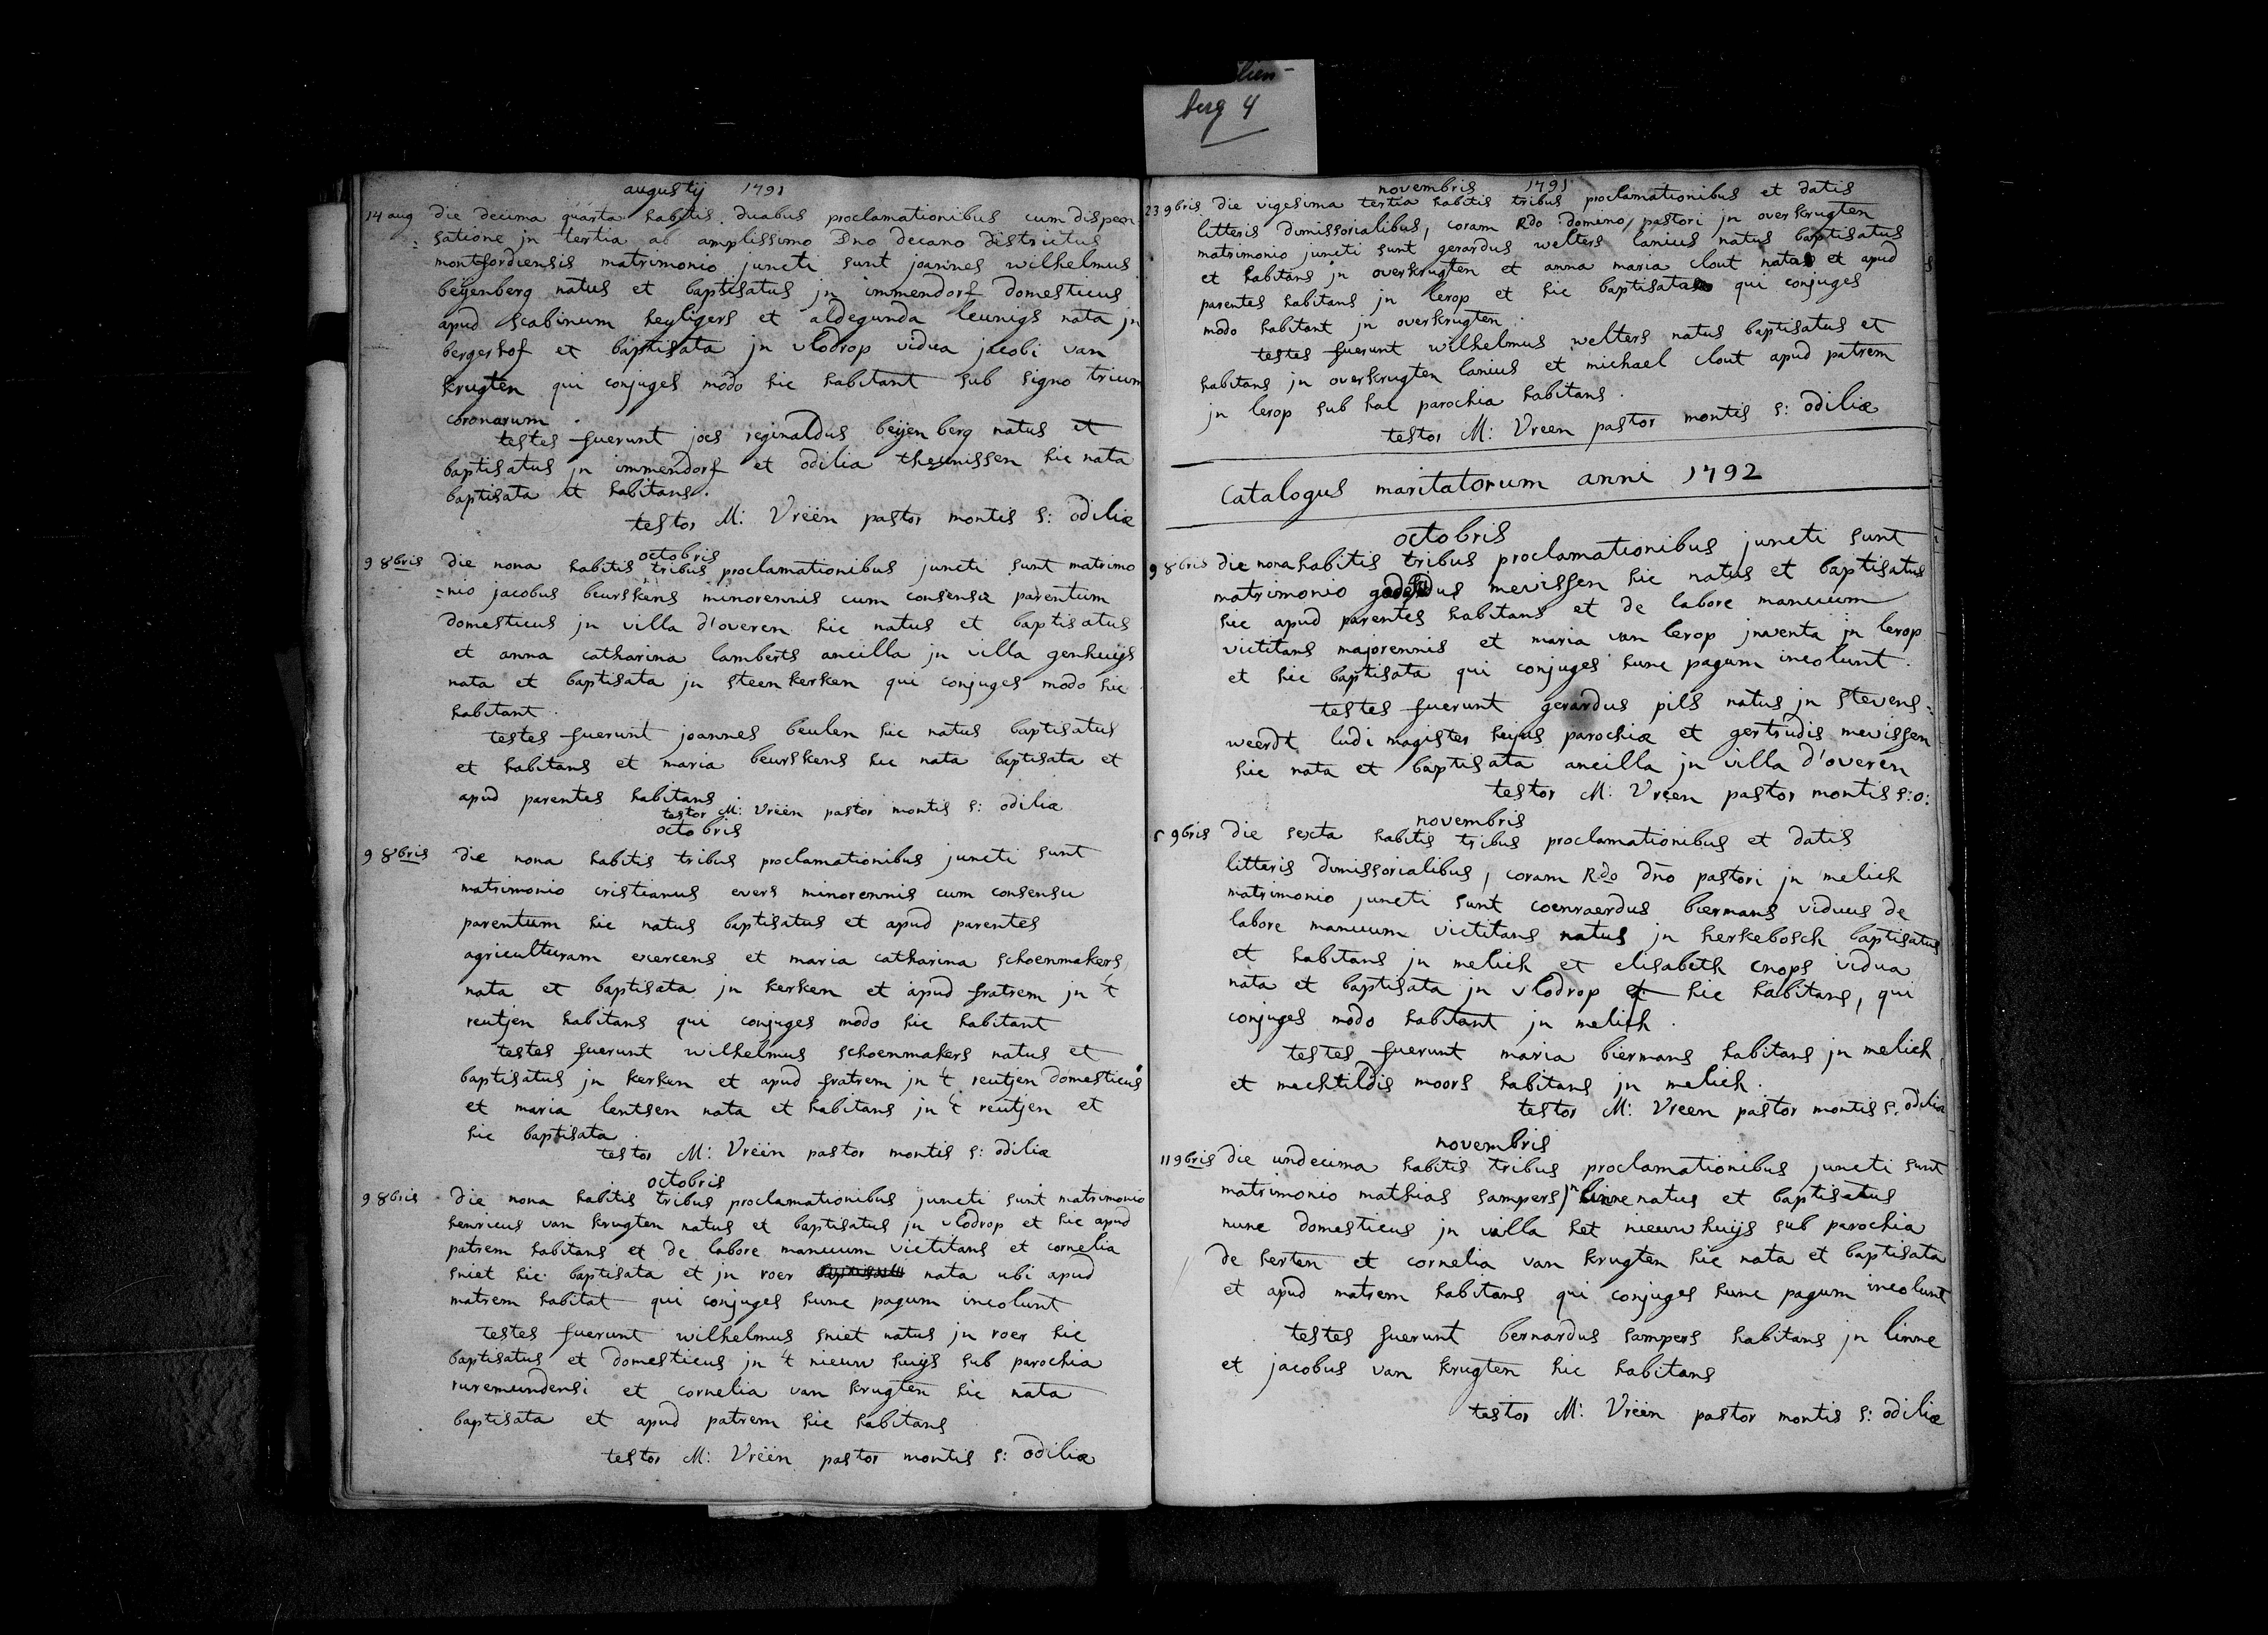 lien-
berg 4
augustij 1791
14 aug die decima quarta habitis duabus proclamationibus cum dispen
: satione jn tertia ab amplissimo Dno decano districtus
montfordiensis matrimonio juncti sunt joannes wilhelmus
beijenberg natus et baptisatus jn immendorf domesticus
apud scabinum heyligers et aldegunda leunigs nata jn
bergerhof et baptisata jn vlodrop vidua jacobi van
krugten qui conjuges modo hic habitant sub signo trium
coronarum.
testes fuerunt joes reginaldus beijenberg natus et
baptisatus jn immendorf et odilia theunissen hic nata
baptisata et habitans.
testor M: Vrëën pastor montis s: odiliæ
octobris
9 8bris die nona habitis tribus proclamationibus juncti sunt matrimo
=nio jacobus beurskens minorennis cum consensu parentum
domesticus jn villa d'overen hic natus et baptisatus
et anna catharina lamberts ancilla jn villa genhuijs
nata et baptisata jn steenkerken qui conjuges modo hic
habitant.
testes fuerunt joannes beulen hic natus baptisatus
et habitans et maria beurskens hic nata baptisata et
apud parentes habitans.
testor M: Vrëën pastor montis s: odiliæ
octobris
9 8bris die nona habitis tribus proclamationibus juncti sunt
matrimonio cristianus evers minorennis cum consensu
parentum hic natus baptisatus et apud parentes
agriculturam exercens et maria catharina schoenmakers
nata et baptisata jn kerken et apud fratrem jn 't
reutjen habitans qui conjuges modo hic habitant
testes fuerunt wilhelmus schoenmakers natus et
baptisatus jn kerken et apud fratrem jn 't reutjen domesticus
et maria lentsen nata et habitans jn 't reutjen et
hic baptisata.
testor M: Vrëën pastor montis s: odiliæ
octobris
9 8bris die nona habitis tribus proclamationibus juncti sunt matrimonio
henricus van krugten natus et baptisatus jn vlodrop et hic apud
patrem habitans et de labore manuum victitans et cornelia
sniet hic baptisata et jn roer nata ubi apud
matrem habitat qui conjuges hunc pagum incolunt
testes fuerunt wilhelmus sniet natus jn roer hic
baptisatus et domesticus jn 't nieuw huijs sub parochia
ruremundensi et cornelia van krugten hic nata
baptisata et apud patrem hic habitans
testor M: Vrëën pastor montis s: odiliæ
novembris 1791
23 9bris die vigesima tertia habitis tribus proclamationibus et datis
litteris dimissorialibus, coram Rdo domino pastori jn overkrugten
matrimonio juncti sunt gerardus welters lanius natus baptisatus
et habitans jn overkrugten et anna maria clout nata et apud
parentes habitans jn lerop et hic baptisata qui conjuges
modo habitant jn overkrugten.
testes fuerunt wilhelmus welters natus baptisatus et
habitans jn overkrugten lanius et michael clout apud patrem
jn lerop sub hac parochia habitans.
testor M: Vreen pastor montis s: odiliæ
Catalogus maritatorum anni 1792
octobris
9 8bris die nona habitis tribus proclamationibus juncti sunt
matrimonio mevissen hic natus et baptisatus
hic apud parentes habitans et de labore manuum
victitans majorennis et maria van lerop jnventa jn lerop
et hic baptisata qui conjuges hunc pagum incolunt.
testes fuerunt gerardus pils natus jn stevens=
weerdt ludi magister hujus parochiæ et gertrudis mevissen
hic nata et baptisata ancilla jn villa d'overen
testor M: Vreen pastor montis s:o:
novembris
6 9bris die sexta habitis tribus proclamationibus et datis
litteris dimissorialibus, coram Rdo dño pastori jn melick
matrimonio juncti sunt coenraerdus biermans viduus de
labore manuum victitans natus jn herkebosch baptisatus
et habitans jn melick et elisabeth cnops vidua
nata et baptisata jn vlodrop et hic habitans, qui
conjuges modo habitant jn melick.
testes fuerunt maria biermans habitans jn melick,
et mechtildis moors habitans jn melick.
testor M: Vreen pastor montis s: odiliæ
novembris
11 9bris die undecima habitis tribus proclamationibus juncti sunt
matrimonio mathias sampers jn linne natus et baptisatus
nunc domesticus jn villa het nieuwhuijs sub parochia
de herten et cornelia van krugten hic nata et baptisata
et apud matrem habitans qui conjuges hunc pagum incolunt
testes fuerunt bernardus sampers habitans jn linne
et jacobus van krugten hic habitans
testor M: Vrëën pastor montis s: odiliæ